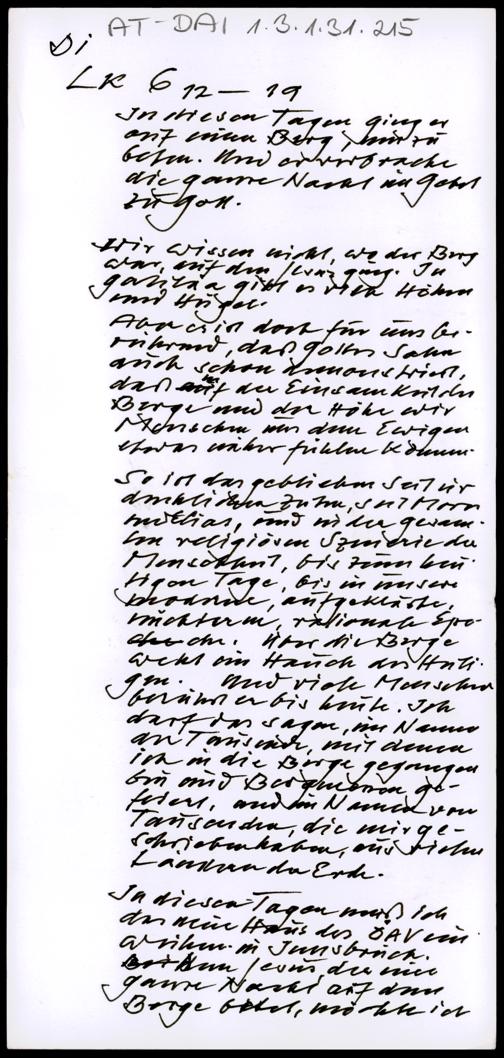 AT-DAI 1.3.1.31.215
Di
LK 6 12 – 19
In diesen Tagen ging er
auf einen Berg, um zu
beten. Und er verbrachte
die ganze Nacht im Gebet
zu Gott.
Wir wissen nicht, wo der Berg
war, auf den Jesus ging. In
Galiläa gibt es viele Höhen
und Hügel.
Aber es ist doch für uns be-
rührend, daß Gottes Sohn
auch schon demonstriert,
daß auf der Einsamkeit der
Berge und der Höhe wir
Menschen uns dem Ewigen
etwas näher fühlen können.
So ist das geblieben seit ur-
denklichen Zeiten, seit Moses
und Elias, und in der gesam-
ten religiösen Szenerie der
Menschheit, bis zum heu-
tigen Tage, bis in unsere
moderne, aufgeklärte,
nüchterne, rationale Epo-
che. Über die Berge
weht ein Hauch des Heili-
gen. Und viele Menschen
berührt er bis heute. Ich
darf das sagen, im Namen
der Tausende, mit denen
ich in die Berge gegangen
bin und Bergmessen ge-
feiert, und im Namen von
Tausenden, die mir ge-
schrieben haben, aus vielen
Ländern der Erde.
In diesen Tagen muß ich
das neue Haus des ÖAV ein-
weihen in Innsbruck.
Jesus, der eine
ganze Nacht auf dem
Berge betet, möchte ich